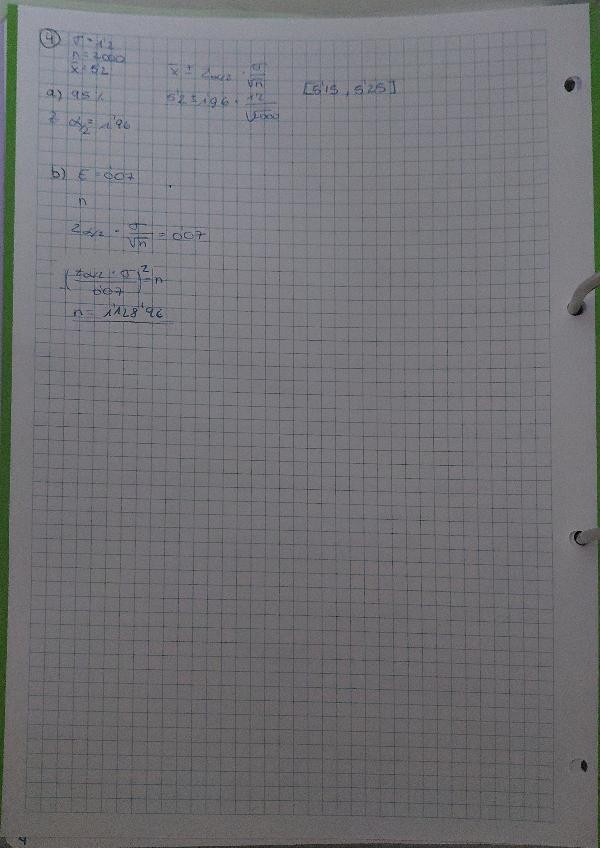 4 σ = 1'2
n = 2000
x̄ = 5'2
x̄ ± z α/2 · σ/√n
a) 95%
5'2 ± 1'96 · 1'2/√2000
[5'15, 5'25]
z α/2 = 1'96
b) E = 0'07
n
z α/2 · σ/√n = 0'07
(z α/2 · σ / 0'07)² = n
n = 1'128'96